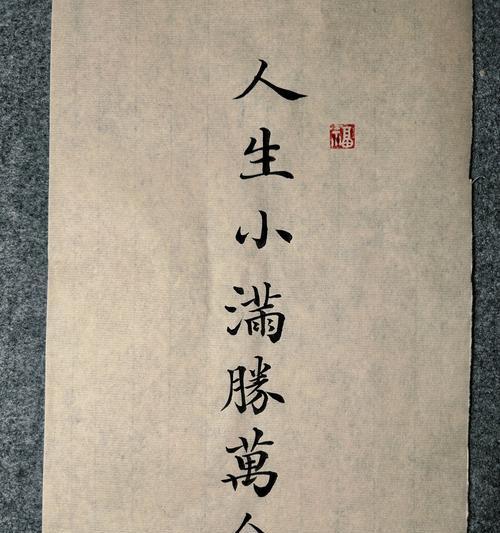 人生小滿勝萬
福